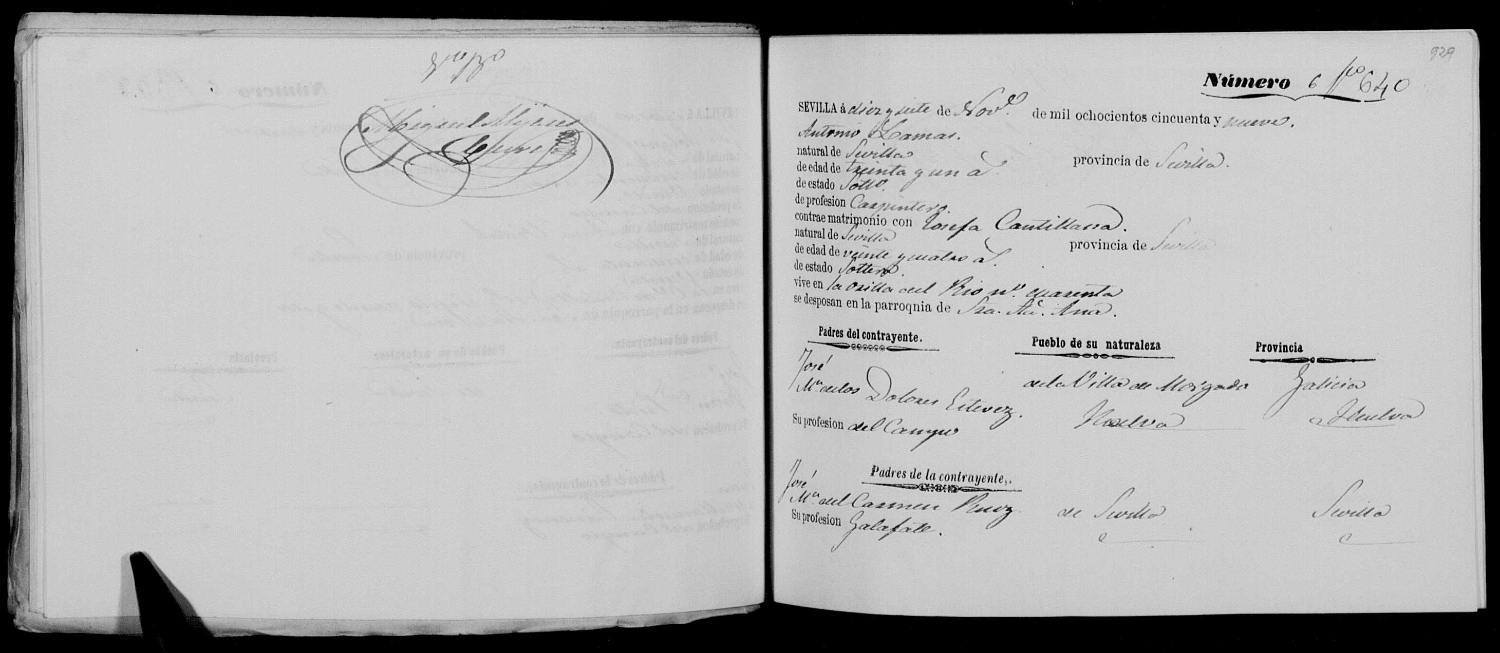 Miguel
929
Número 6 fo 640
SEVILLA á diez y siete de Nove. de mil ochocientos cincuenta y nueve.
Antonio Lamas.
natural de Sevilla provincia de Sevilla.
de edad de treinta y un a.
de estado Solto.
de profesion Carpintero.
contrae matrimonio con Josefa Cantillana.
natural de Sevilla provincia de Sevilla
de edad de veinte y cuatro a.
de estado Soltera.
vive en la orilla del Rio no. cuarenta
se desposan en la parroqnia de Sra. Sta. Ana.
Padres del contrayente. Pueblo de su naturaleza Provincia
José de la Villa de Morgado Galicia
Ma. de los Dolores Estevez. Huelva Huelva
Su profesion del Campo
Padres de la contrayente,.
José
Ma. del Carmen Ruiz de Sevilla Sevilla
Su profesion Galafate.